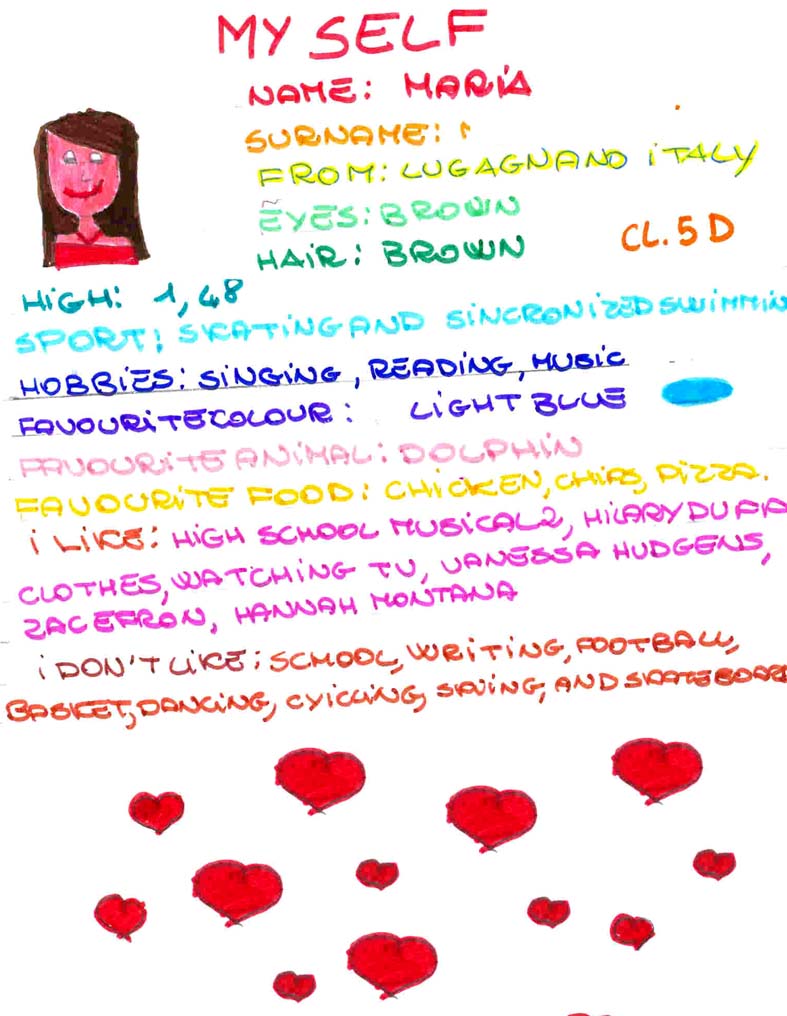 MY SELF
NAME: MARIA
SURNAME:
FROM: LUGAGNANO ITALY
EYES: BROWN
CL. 5 D
HAIR: BROWN
HIGH: 1,48
SPORT: SKATING AND SINCRONIZED SWIMMIN
HOBBIES: SINGING, READING, MUSIC
FAVOURITE COLOUR: LIGHT BLUE
FAVOURITE ANIMAL: DOLPHIN
FAVOURITE FOOD: CHICKEN, CHIPS, PIZZA.
I LIKE: HIGH SCHOOL MUSICAL 2, HILARY DUFF
CLOTHES, WATCHING TV, VANESSA HUDGENS,
ZAC EFRON, HANNAH MONTANA
I DON'T LIKE: SCHOOL, WRITING, FOOTBALL,
BASKET, DANCING, CYICLING, SKIING, AND SKATEBOARD